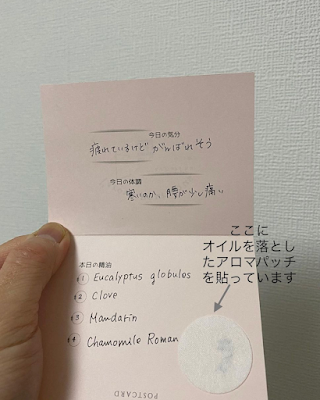 今日の気分
疲れているけど がんばれそう
今日の体調
寒いのか、腰が少し痛い
ここに
オイルを落とし
たアロマパッチ
を貼っています
本日の精油
#1 Eucalyptus globules
#2 Clove
#3 Mandarin
#4 Chamomile Roman
POSTCARD